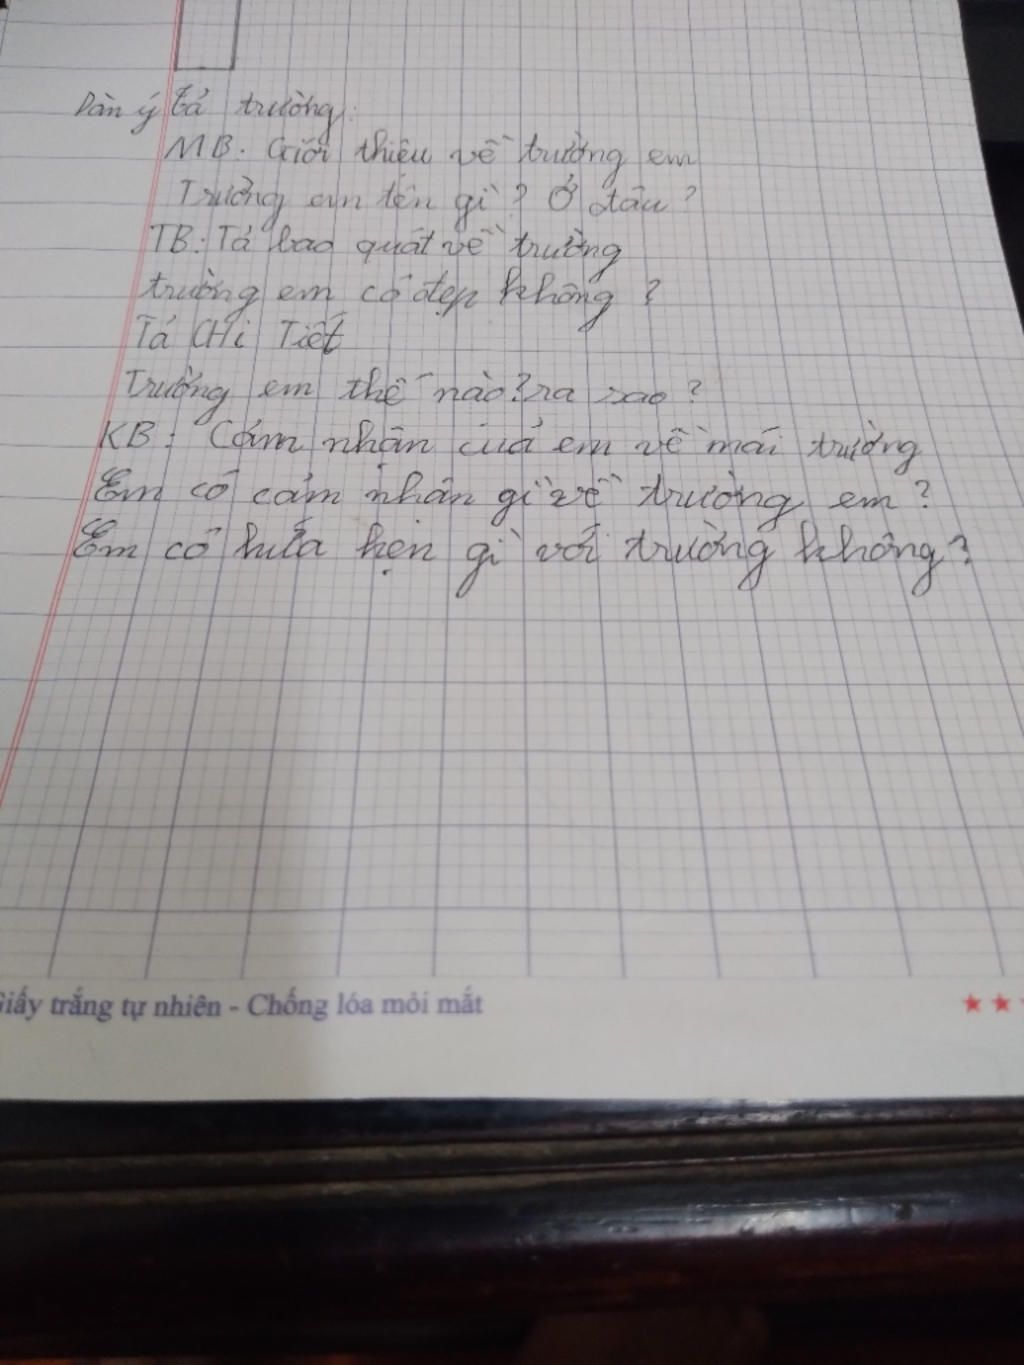 Dàn ý tả trường:
MB: Giới thiệu về trường em
Trường em tên gì? Ở đâu?
TB: Tả bao quát về trường
trường em có đẹp không?
Tả CHi Tiết
Trường em thế nào? ra sao?
KB: Cảm nhận của em về mái trường
Em có cảm nhận gì về trường em?
Em có hứa hẹn gì với trường không?
Giấy trắng tự nhiên - Chống lóa mỏi mắt